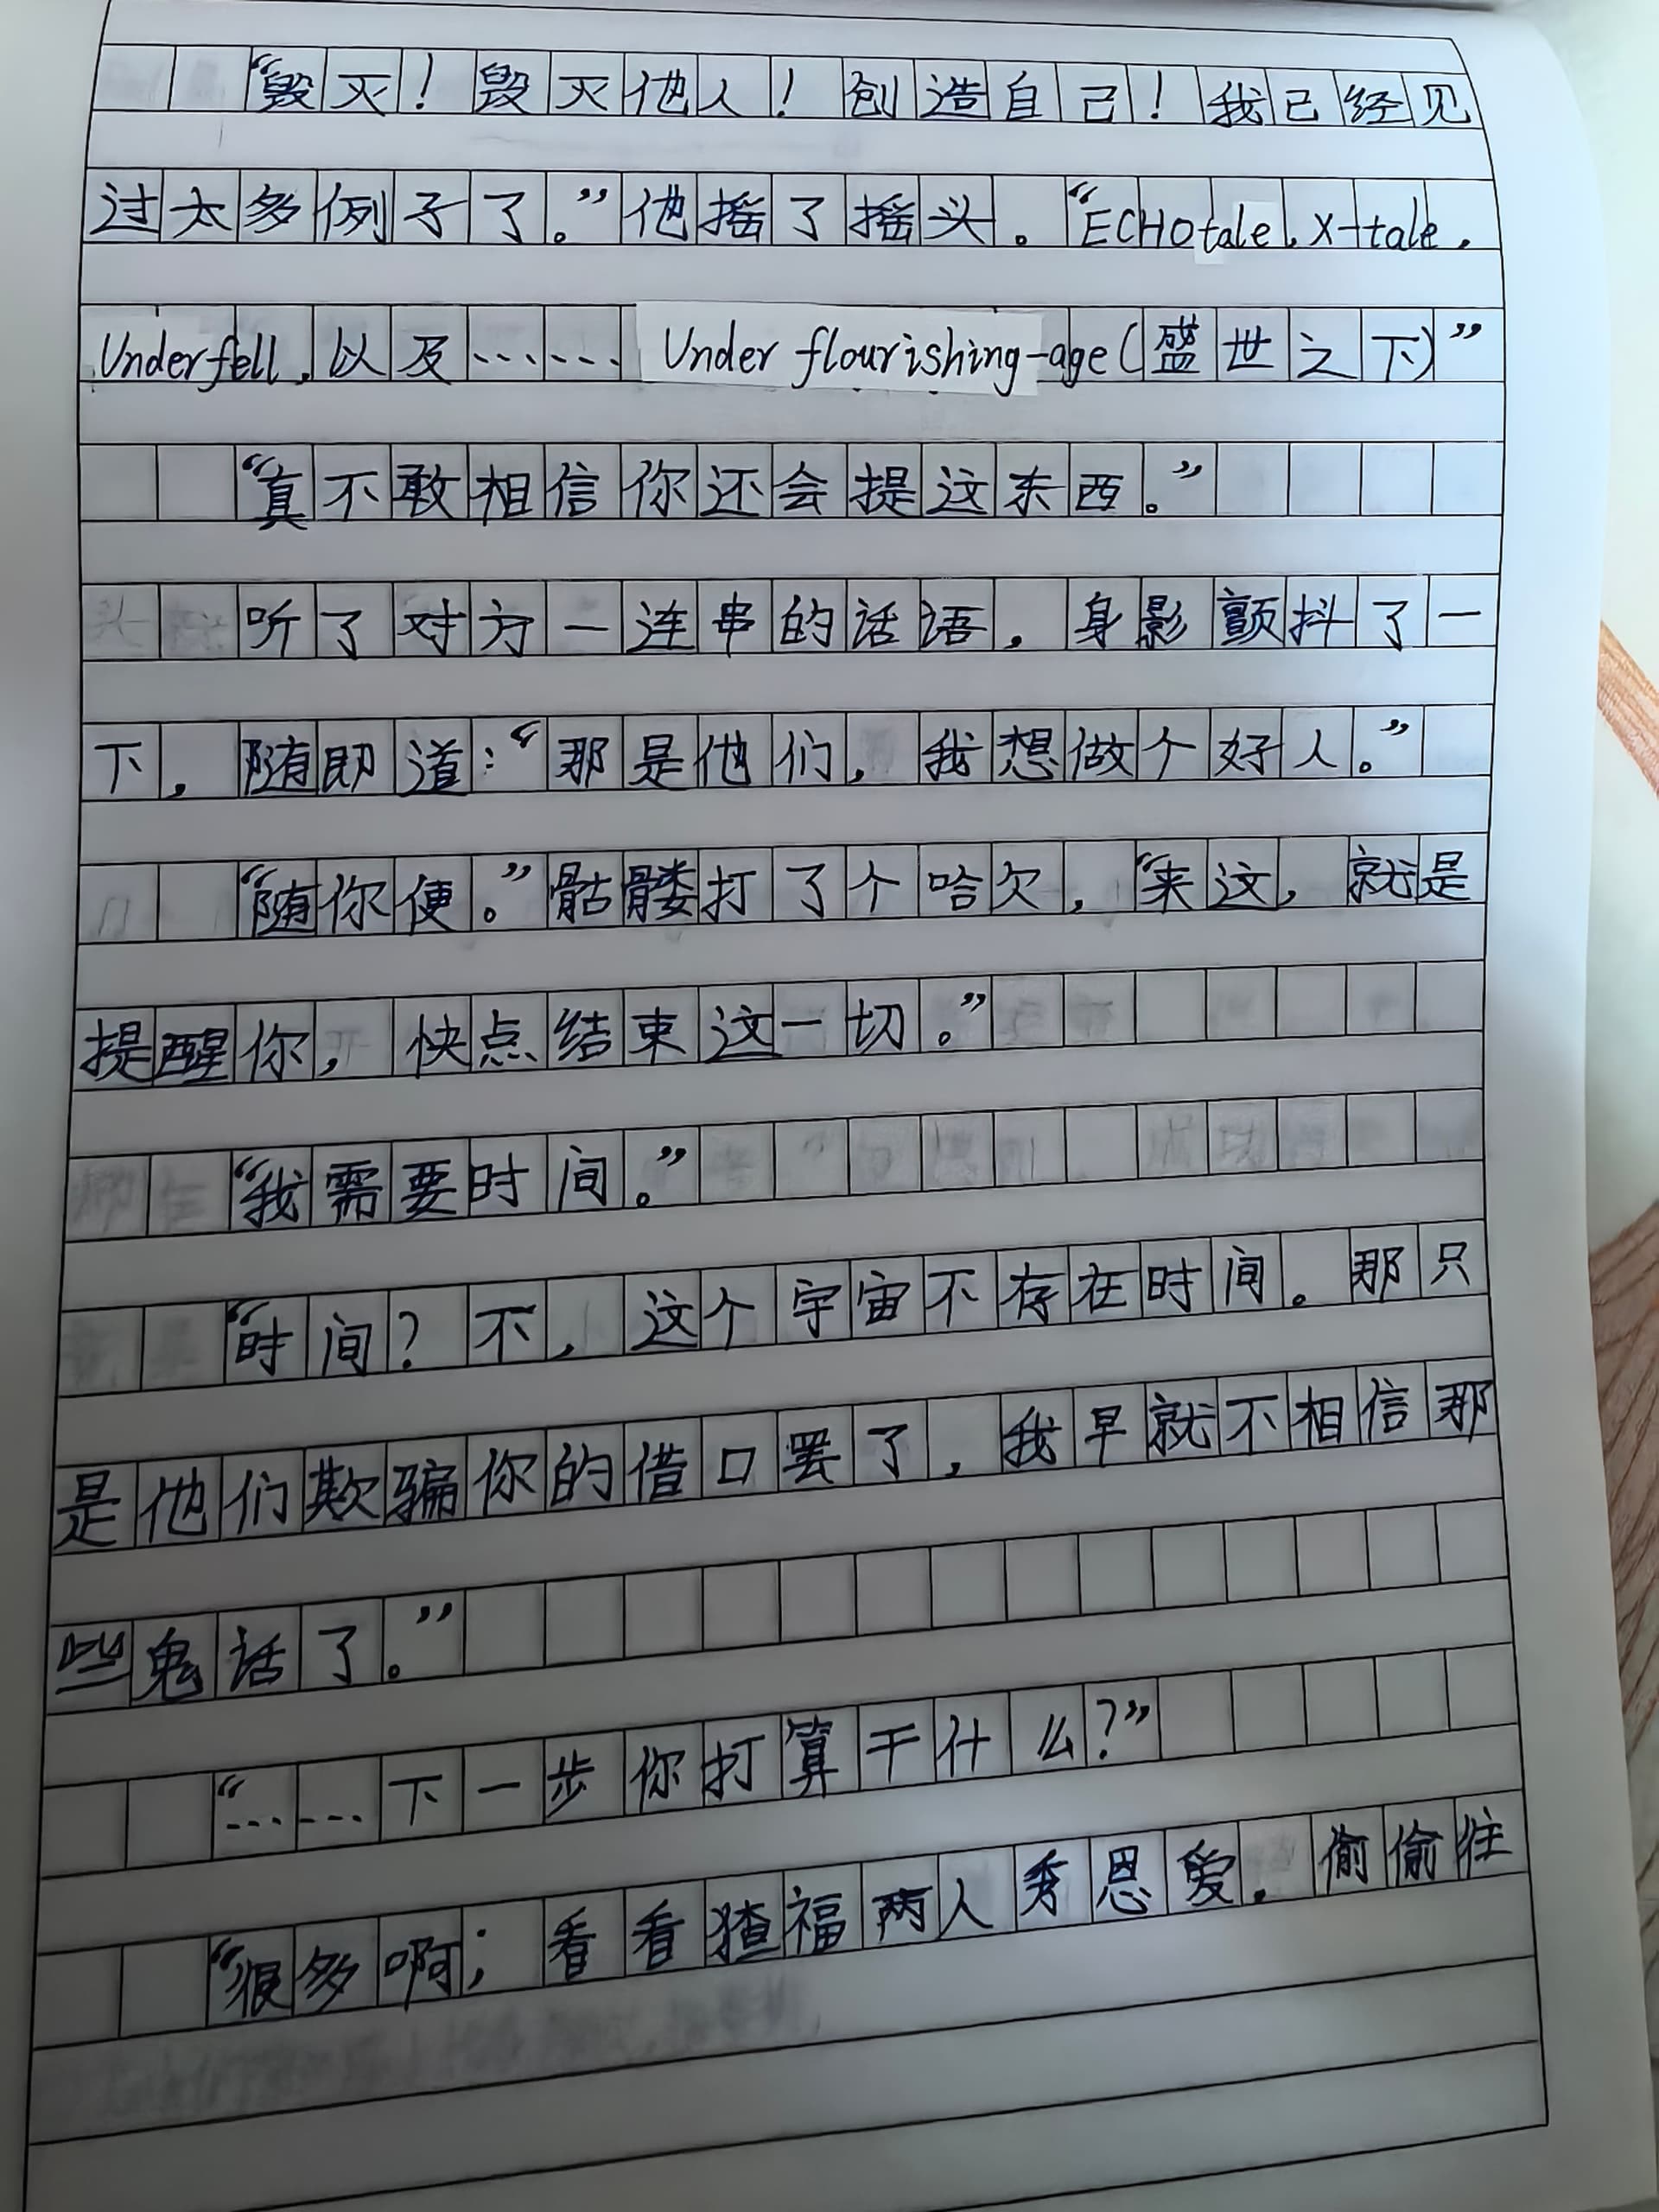 “毁灭！毁灭他人！创造自己！我已经见
过太多例子了。”他摇了摇头。“ECHOtale、X-tale、
Underfell、以及……Under flourishing-age(盛世之下)”
“真不敢相信你还会提这东西。”
听了对方一连串的话语，身影颤抖了一
下，随即道：“那是他们，我想做个好人。”
“随你便。”骷髅打了个哈欠，“来这，就是
提醒你，快点结束这一切。”
“我需要时间。”
“时间？不，这个宇宙不存在时间。那只
是他们欺骗你的借口罢了，我早就不相信那
些鬼话了。”
“……下一步你打算干什么？”
“很多啊；看看猹福两人秀恩爱。偷偷往